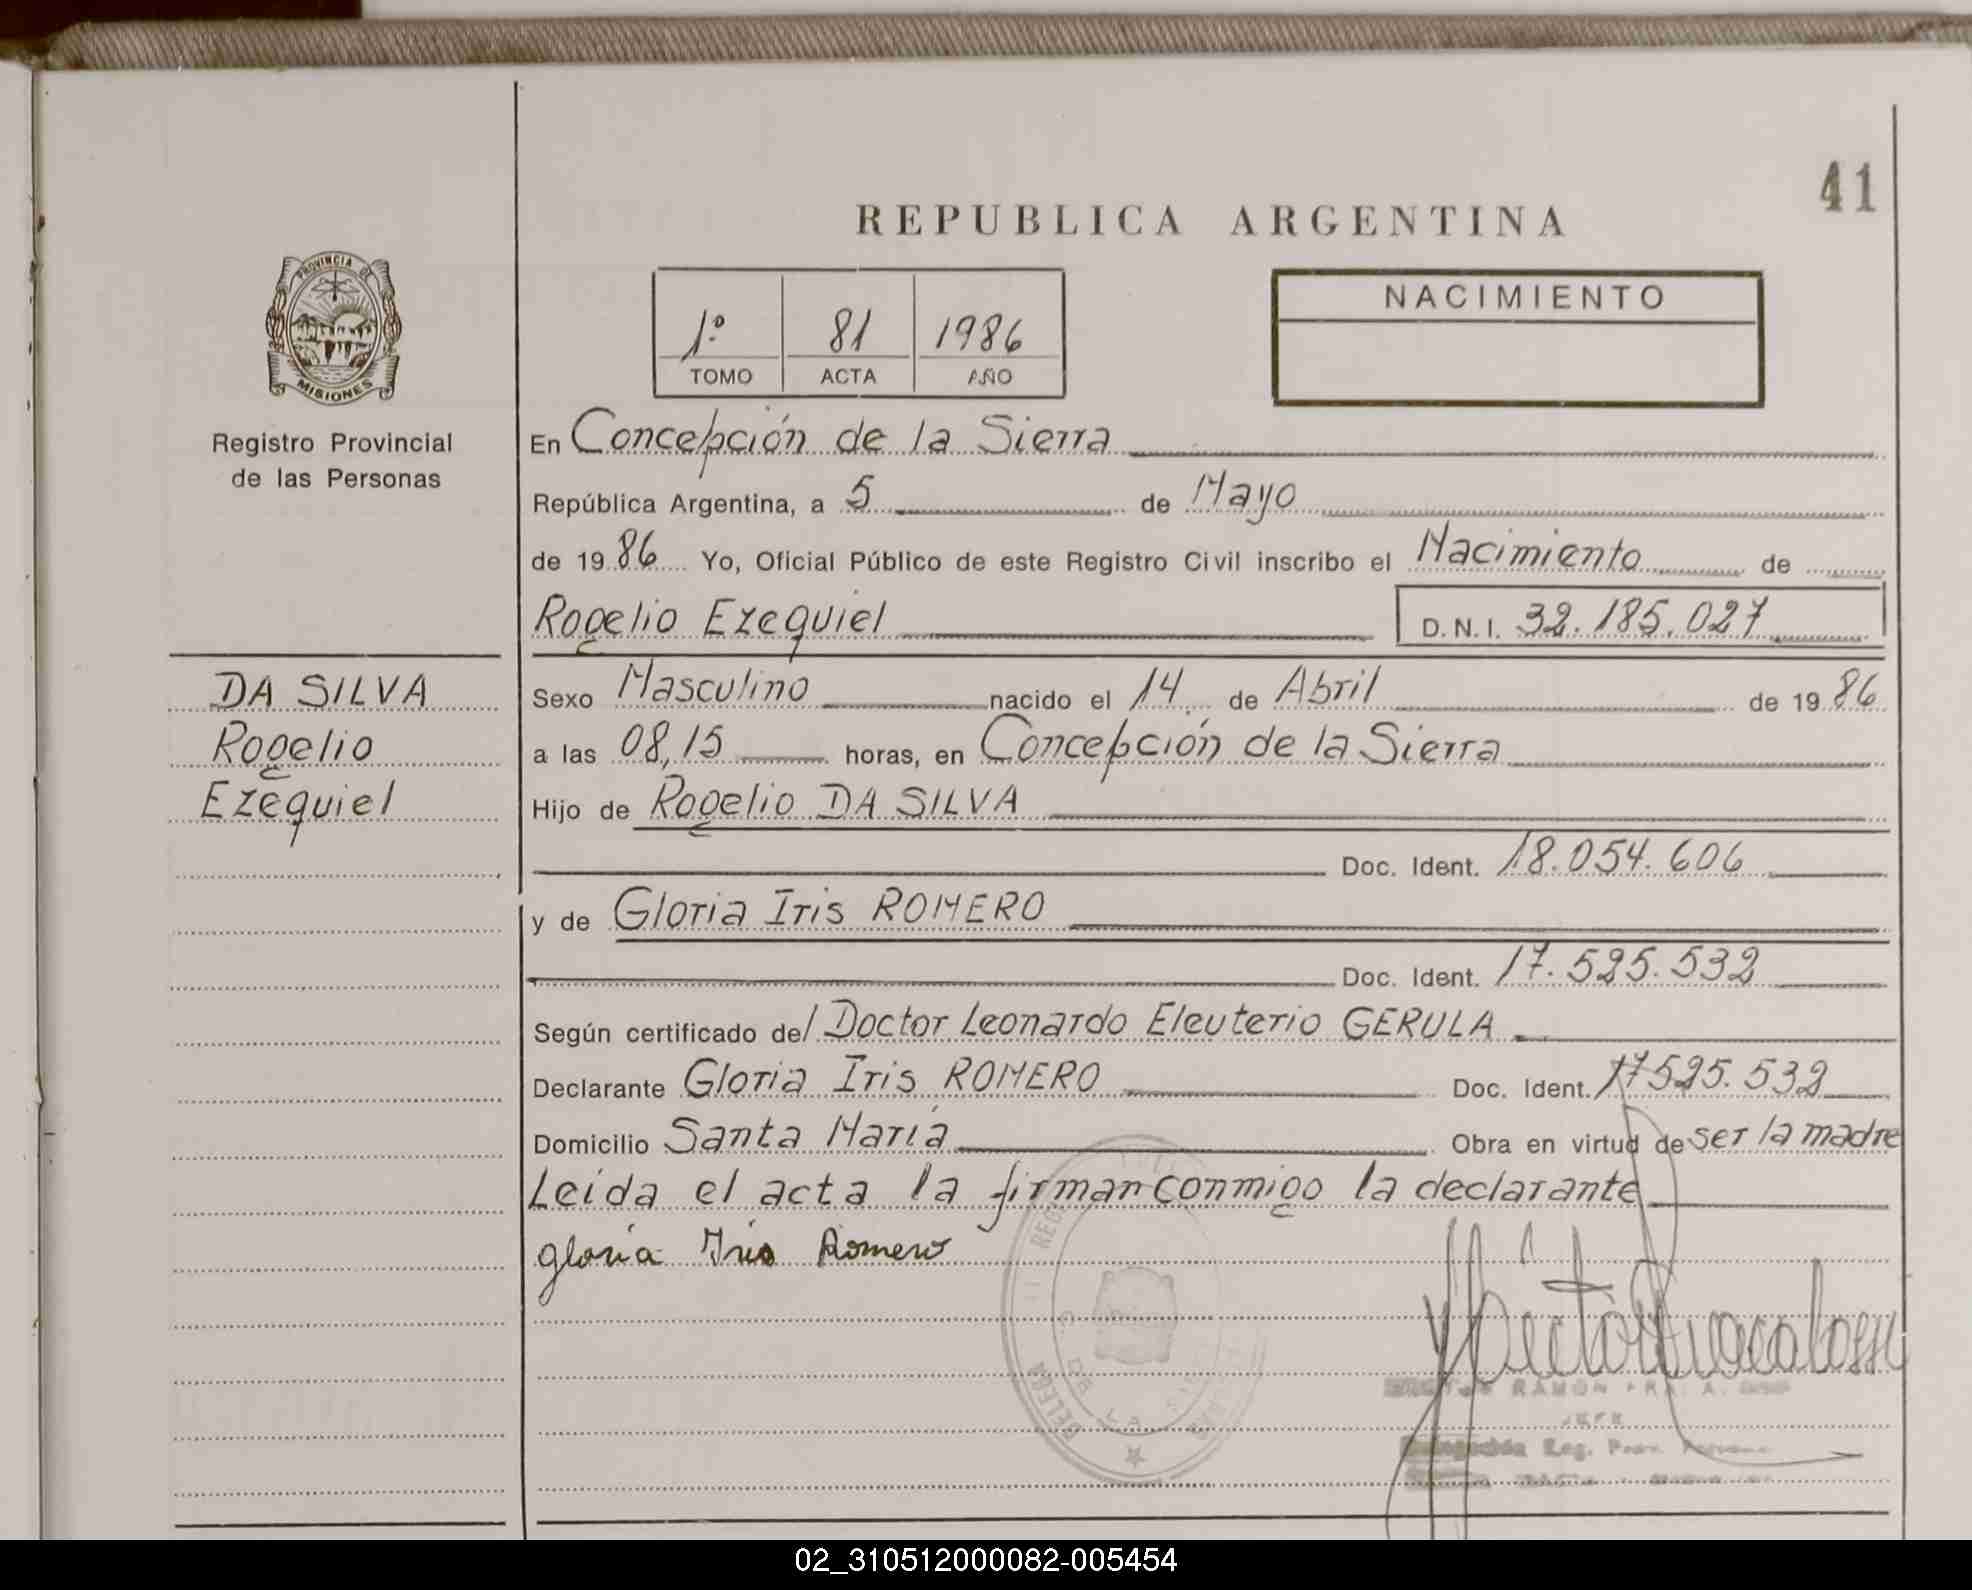 41
REPUBLICA ARGENTINA
PROVINCIA DE
MISIONES
Registro Provincial
de las Personas
1º 81 1986
TOMO ACTA AÑO
NACIMIENTO
En Concepción de la Sierra
República Argentina, a 5 de Mayo
de 1986 Yo, Oficial Público de este Registro Civil inscribo el Nacimiento de
Rogelio Ezequiel D.N.I. 32.185.027
DA SILVA
Rogelio
Ezequiel
Sexo Masculino nacido el 14 de Abril de 1986
a las 08,15 horas, en Concepción de la Sierra
Hijo de Rogelio DA SILVA
Doc. Ident. 18.054.606
y de Gloria Iris ROMERO
Doc. Ident. 17.525.532
Según certificado del Doctor Leonardo Eleuterio GERULA
Declarante Gloria Iris ROMERO Doc. Ident. 17525.532
Domicilio Santa María Obra en virtud de ser la madre
Leída el acta la firman conmigo la declarante
Gloria Iris Romero
RAMON
JEFE
Delegación Reg. Prov.
DE LA
02_310512000082-005454